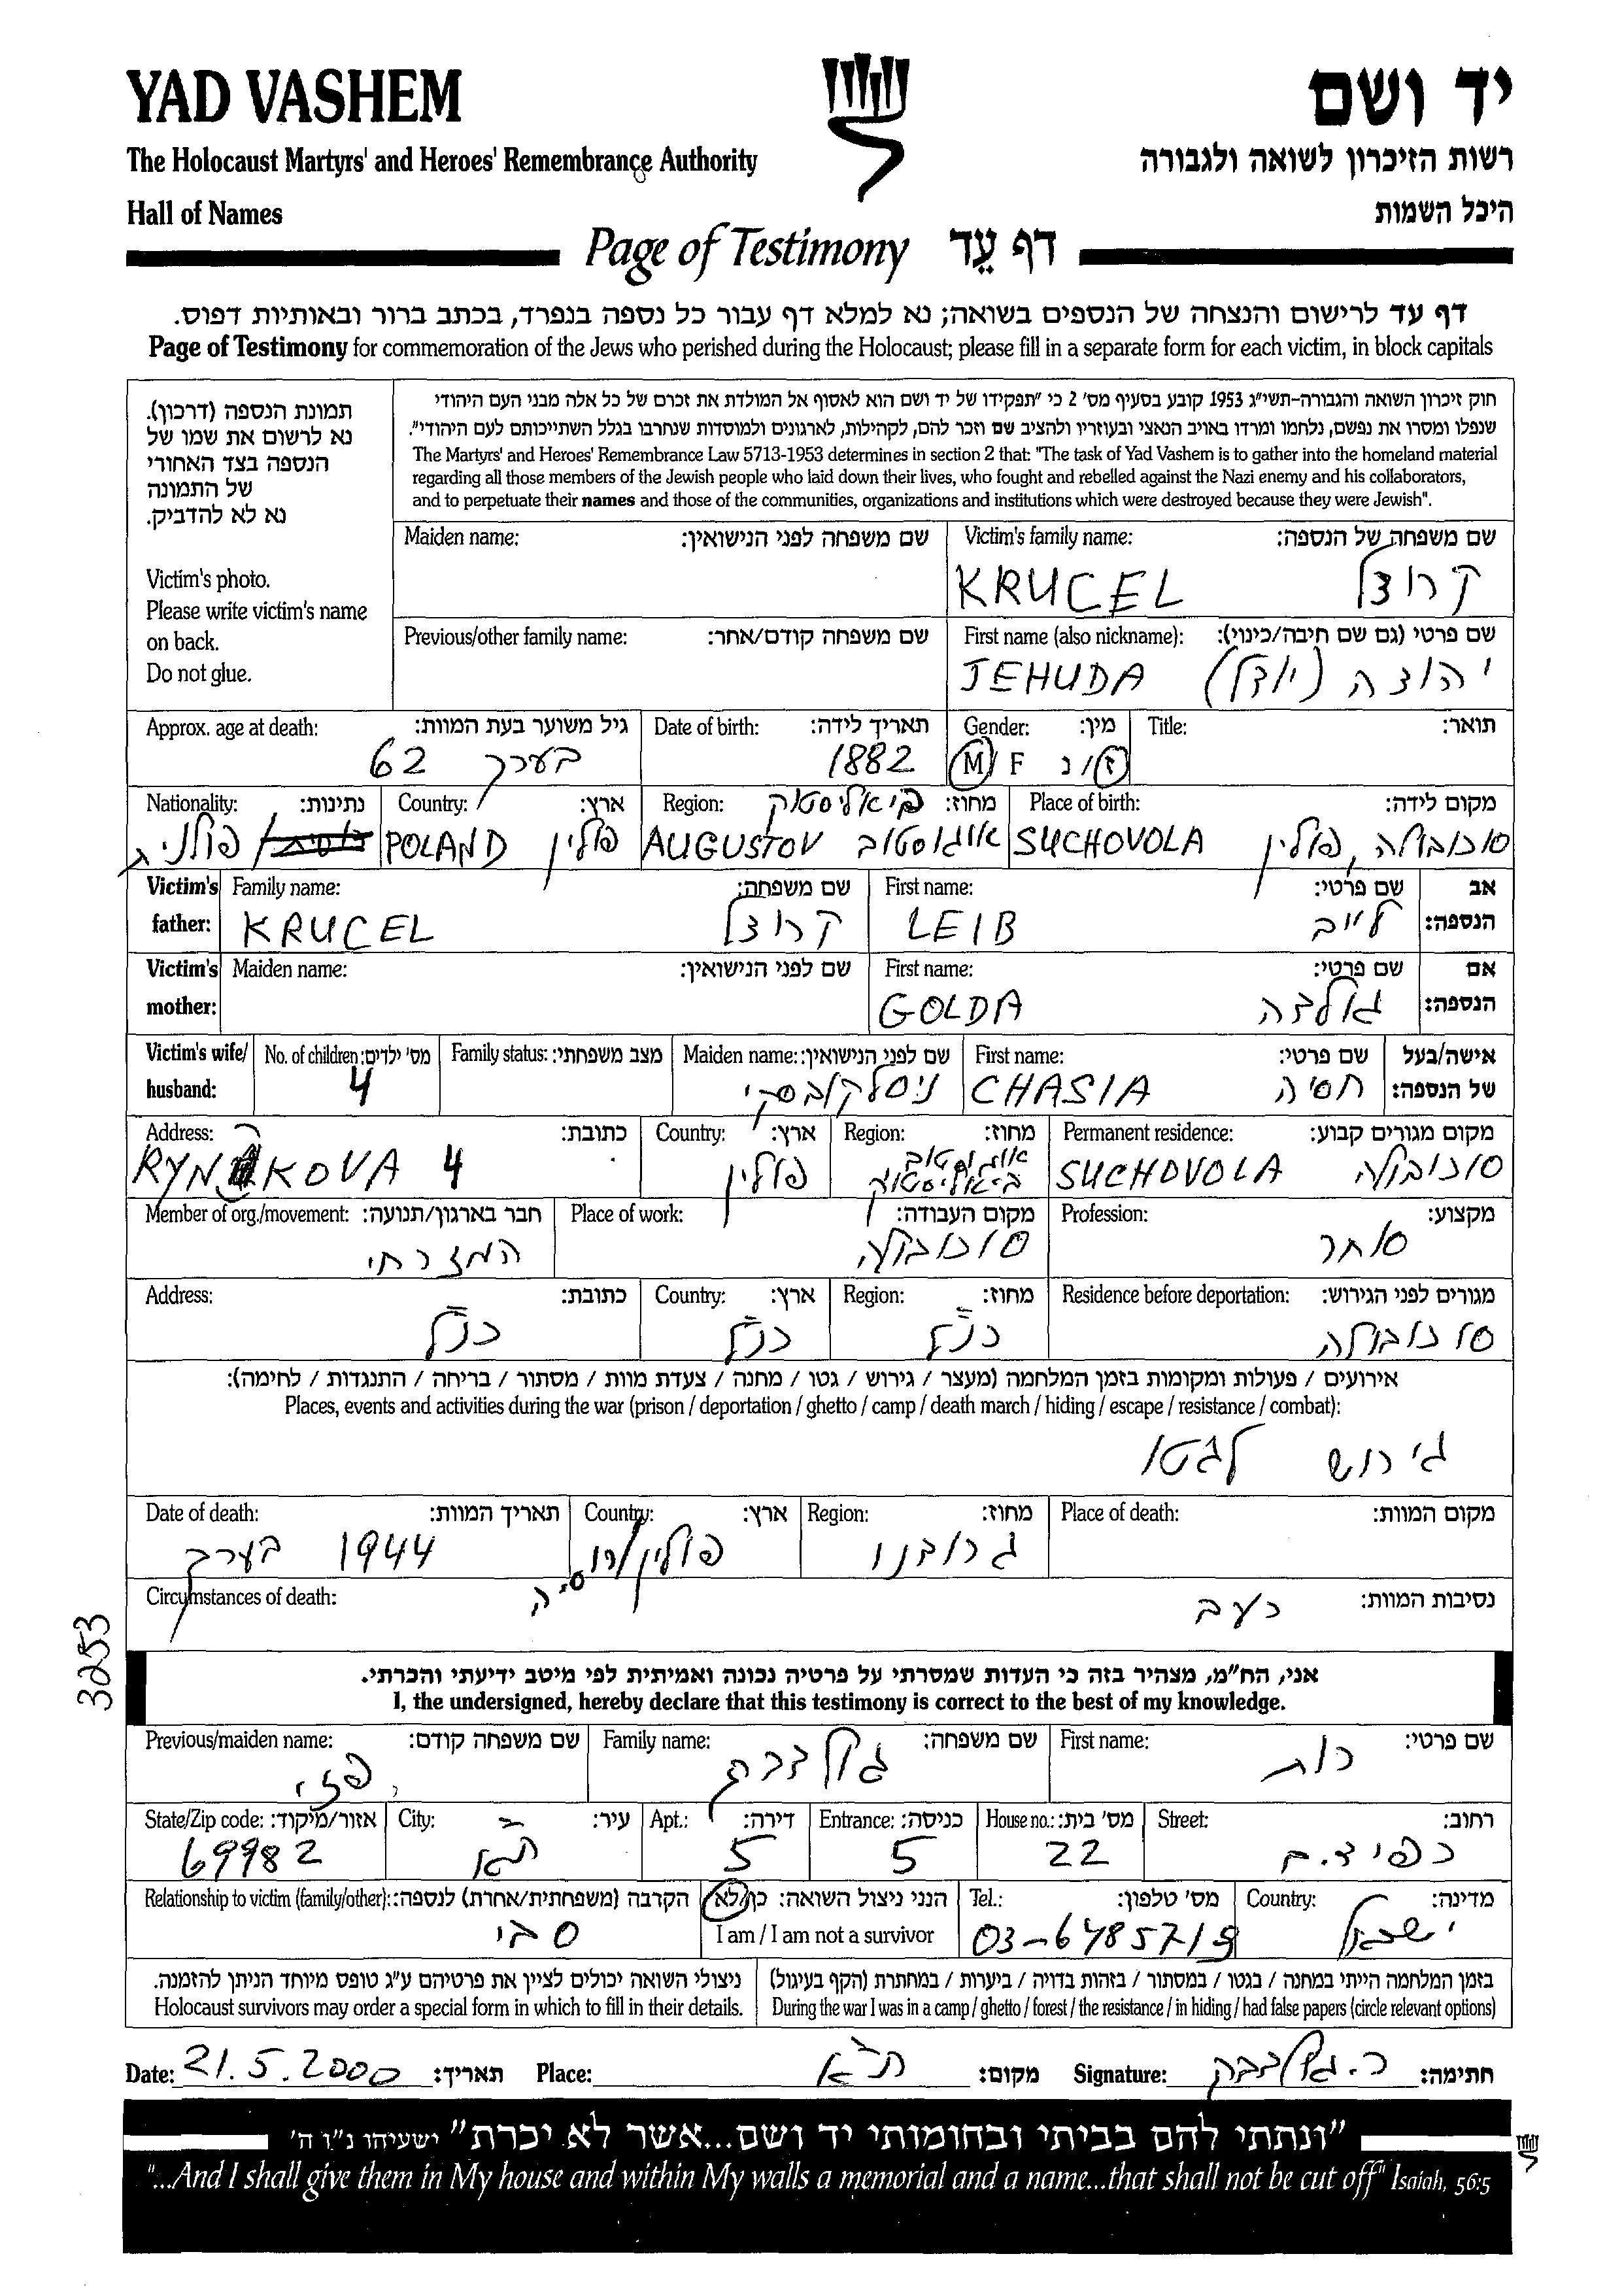 YAD VASHEM
יד ושם
The Holocaust Martyrs' and Heroes' Remembrance Authority
רשות הזיכרון לשואה ולגבורה
Hall of Names
היכל השמות
Page of Testimony דף עֵד
דף עד לרישום והנצחה של הנספים בשואה; נא למלא דף עבור כל נספה בנפרד, בכתב ברור ובאותיות דפוס.
Page of Testimony for commemoration of the Jews who perished during the Holocaust; please fill in a separate form for each victim, in block capitals
תמונת הנספה (דרכון).
נא לרשום את שמו של
הנספה בצד האחורי
של התמונה
נא לא להדביק.
Victim's photo.
Please write victim's name
on back.
Do not glue.
חוק זיכרון השואה והגבורה-תשי"ג 1953 קובע בסעיף מס' 2 כי "תפקידו של יד ושם הוא לאסוף אל המולדת את זכרם של כל אלה מבני העם היהודי
שנפלו ומסרו את נפשם, נלחמו ומרדו באויב הנאצי ובעוזריו ולהציב שם וזכר להם, לקהילות, לארגונים ולמוסדות שנחרבו בגלל השתייכותם לעם היהודי".
The Martyrs' and Heroes' Remembrance Law 5713-1953 determines in section 2 that: "The task of Yad Vashem is to gather into the homeland material
regarding all those members of the Jewish people who laid down their lives, who fought and rebelled against the Nazi enemy and his collaborators,
and to perpetuate their names and those of the communities, organizations and institutions which were destroyed because they were Jewish".
Victim's family name: שם משפחה של הנספה:
KRUCEL קרוצל
Maiden name: שם משפחה לפני הנישואין:
First name (also nickname): שם פרטי (גם שם חיבה/כינוי):
JEHUDA יהודה (יודל)
Previous/other family name: שם משפחה קודם/אחר:
Title: תואר:
Gender: מין:
M/F ז/נ
Date of birth: תאריך לידה:
1882
Approx. age at death: גיל משוער בעת המוות:
62 בערך
Place of birth: מקום לידה:
SUCHOVOLA סוכובולה, פולין
Region: מחוז: ביאליסטוק
AUGUSTOV אוגוסטוב
Country: ארץ:
POLAND פולין
Nationality: נתינות:
פולנית
אב הנספה: Victim's father:
First name: שם פרטי:
LEIB לייב
Family name: שם משפחה:
KRUCEL קרוצל
אם הנספה: Victim's mother:
First name: שם פרטי:
GOLDA גולדה
Maiden name: שם לפני הנישואין:
אישה/בעל של הנספה: Victim's wife/ husband:
First name: שם פרטי:
CHASIA חסיה
Maiden name: שם לפני הנישואין:
Family status: מצב משפחתי:
No. of children: מס' ילדים:
4
Permanent residence: מקום מגורים קבוע:
SUCHOVOLA סוכובולה
Region: מחוז:
אוגוסטוב
ביאליסטוק
Country: ארץ:
פולין
Address: כתובת:
RYNKOVA 4
Profession: מקצוע:
סוחר
Place of work: מקום העבודה:
סוכובולה
Member of org./movement: חבר בארגון/תנועה:
המזרחי
Residence before deportation: מגורים לפני הגירוש:
סוכובולה
Region: מחוז:
כנ"ל
Country: ארץ:
כנ"ל
Address: כתובת:
כנ"ל
אירועים / פעולות ומקומות בזמן המלחמה (מעצר / גירוש / גטו / מחנה / צעדת מוות / מסתור / בריחה / התנגדות / לחימה):
Places, events and activities during the war (prison / deportation / ghetto / camp / death march / hiding / escape / resistance / combat):
גירוש לגטו
Place of death: מקום המוות:
Region: מחוז:
גרודנו
Country: ארץ:
פולין/רוסיה
Date of death: תאריך המוות:
1944 בערך
Circumstances of death: נסיבות המוות:
רעב
3253
אני, הח"מ, מצהיר בזה כי העדות שמסרתי על פרטיה נכונה ואמיתית לפי מיטב ידיעתי והכרתי.
I, the undersigned, hereby declare that this testimony is correct to the best of my knowledge.
First name: שם פרטי:
רות
Family name: שם משפחה:
גולדברג
Previous/maiden name: שם משפחה קודם:
פזי
Street: רחוב:
House no.: מס' בית:
22
Entrance: כניסה:
5
Apt.: דירה:
5
City: עיר:
ת"א
State/Zip code: אזור/מיקוד:
69982
Country: מדינה:
ישראל
Tel.: מס' טלפון:
03-6485719
הנני ניצול השואה: כן/לא
I am / I am not a survivor
Relationship to victim (family/other): הקרבה (משפחתית/אחרת) לנספה:
סבי
בזמן המלחמה הייתי במחנה / בגטו / במסתור / בזהות בדויה / ביערות / במחתרת (הקף בעיגול)
During the war I was in a camp / ghetto / forest / the resistance / in hiding / had false papers (circle relevant options)
ניצולי השואה יכולים לציין את פרטיהם ע"ג טופס מיוחד הניתן להזמנה.
Holocaust survivors may order a special form in which to fill in their details.
Date: 21.5.2000 תאריך: Place: ת"א מקום: Signature: ר. גולדברג חתימה:
"ונתתי להם בביתי ובחומותי יד ושם...אשר לא יכרת" ישעיהו נ"ו ה'
"...And I shall give them in My house and within My walls a memorial and a name...that shall not be cut off" Isaiah, 56:5